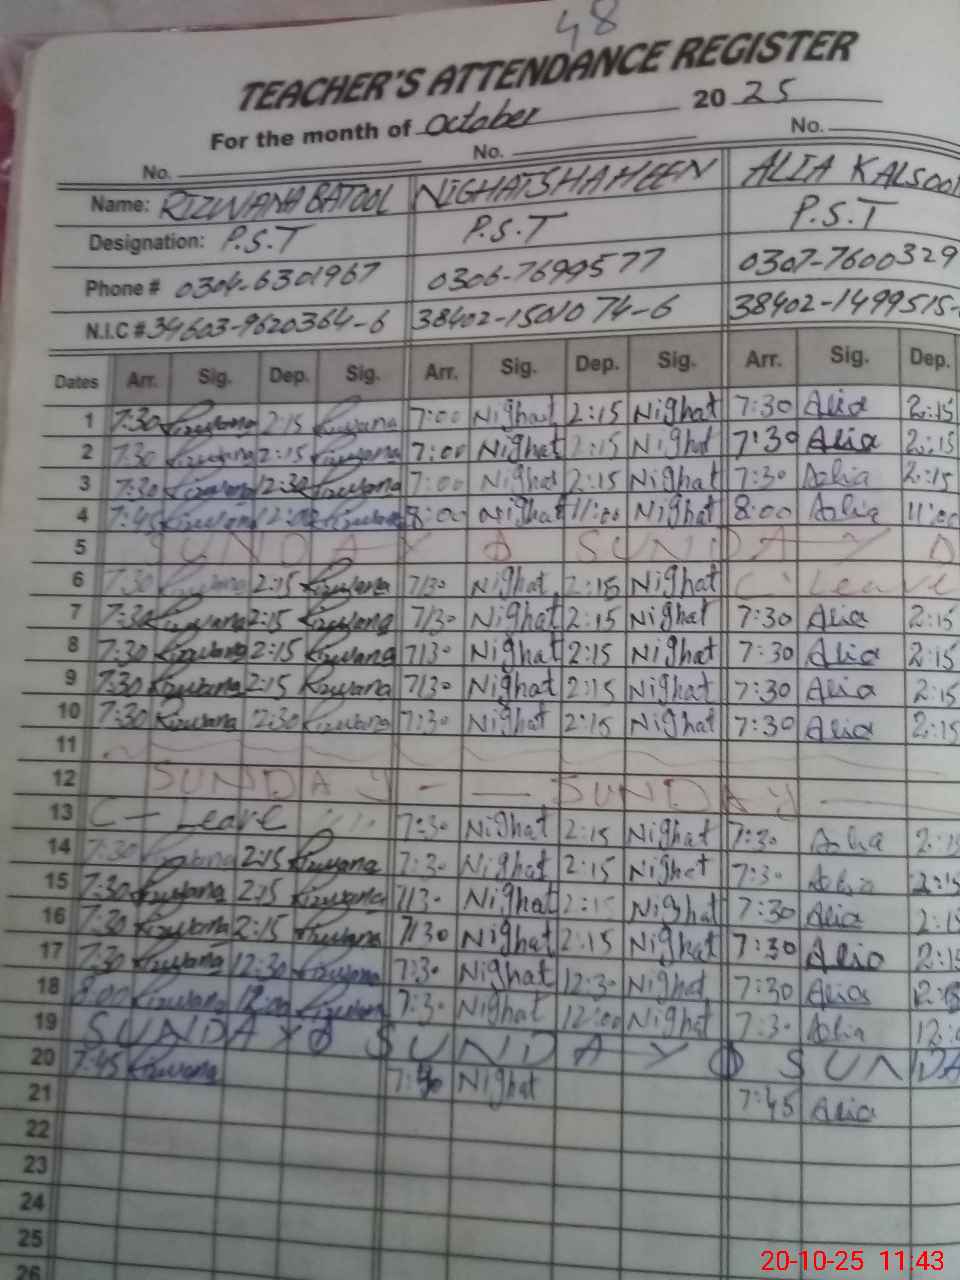 48
TEACHER'S ATTENDANCE REGISTER
For the month of October 2025
No. No. No.
Name: RIZWANA BATOOL NIGHAT SHAHEEN ALIA KALSOO
Designation: P.S.T P.S.T P.S.T
Phone # 0304-6301967 0306-7699577 0307-7600329
N.I.C # 34603-9620364-6 38402-1501074-6 38402-1499515-
Dates Arr. Sig. Dep. Sig. Arr. Sig. Dep. Sig. Arr. Sig. Dep.
1 7:30 Rizwana 2:15 Rizwana 7:00 Nighat 2:15 Nighat 7:30 Alia 2:15
2 7:30 Rizwana 2:15 Rizwana 7:00 Nighat 2:15 Nighat 7:30 Alia 2:15
3 7:30 Rizwana 12:30 Rizwana 7:00 Nighat 2:15 Nighat 7:30 Alia 2:15
4 7:45 Rizwana 12:00 Rizwana 8:00 Nighat 11:00 Nighat 8:00 Alia 11:00
5 SUNDAY SUNDAY
6 7:30 Rizwana 2:15 Rizwana 7:30 Nighat 2:15 Nighat C. Leave
7 7:30 Rizwana 2:15 Rizwana 7:30 Nighat 2:15 Nighat 7:30 Alia 2:15
8 7:30 Rizwana 2:15 Rizwana 7:30 Nighat 2:15 Nighat 7:30 Alia 2:15
9 7:30 Rizwana 2:15 Rizwana 7:30 Nighat 2:15 Nighat 7:30 Alia 2:15
10 7:30 Rizwana 2:30 Rizwana 7:30 Nighat 2:15 Nighat 7:30 Alia 2:15
11
12 SUNDAY - — SUNDAY —
13 C - Leave 7:30 Nighat 2:15 Nighat 7:30 Alia 2:15
14 7:30 Rizwana 2:15 Rizwana 7:30 Nighat 2:15 Nighat 7:30 Alia 2:15
15 7:30 Rizwana 2:15 Rizwana 7:30 Nighat 2:15 Nighat 7:30 Alia 2:15
16 7:30 Rizwana 2:15 Rizwana 7:30 Nighat 2:15 Nighat 7:30 Alia 2:15
17 7:30 Rizwana 12:30 Rizwana 7:30 Nighat 12:30 Nighat 7:30 Alia
18 8:00 Rizwana 12:00 Rizwana 7:30 Nighat 12:00 Nighat 7:30 Alia
19 SUNDAY SUNDAY SUNDA
20 7:45 Rizwana 7:40 Nighat 7:45 Alia
21
22
23
24
25
26
20-10-25 11:43